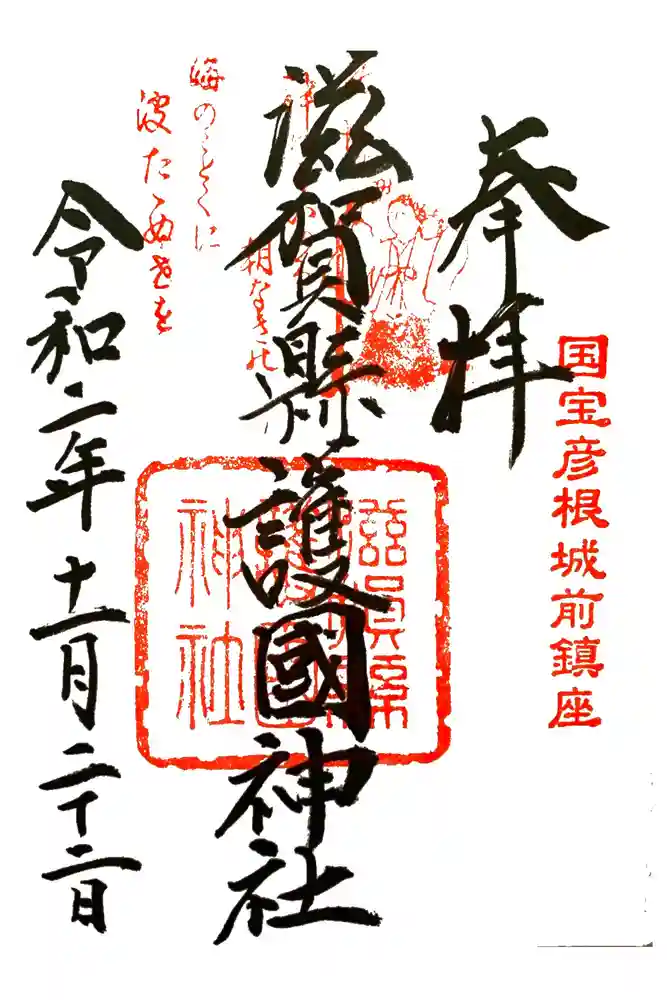 国宝彦根城前鎮座
奉拝
滋賀縣護國神社
朝なきの
海のことくに
波たゝぬ世を
滋賀縣護國神社
令和二年十一月二十二日